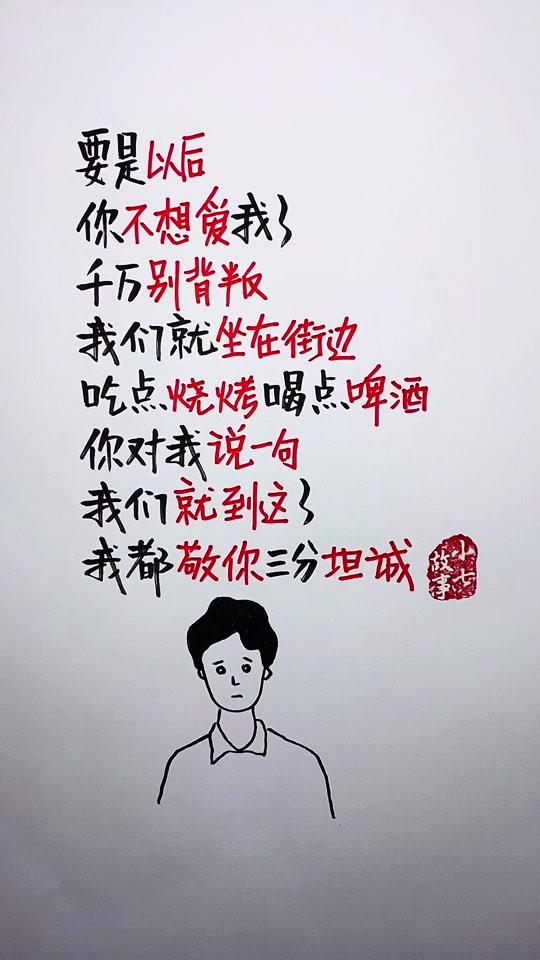 要是以后
你不想爱我了
千万别背叛
我们就坐在街边
吃点烧烤喝点啤酒
你对我说一句
我们就到这了
我都敬你三分坦诚
小七
故事